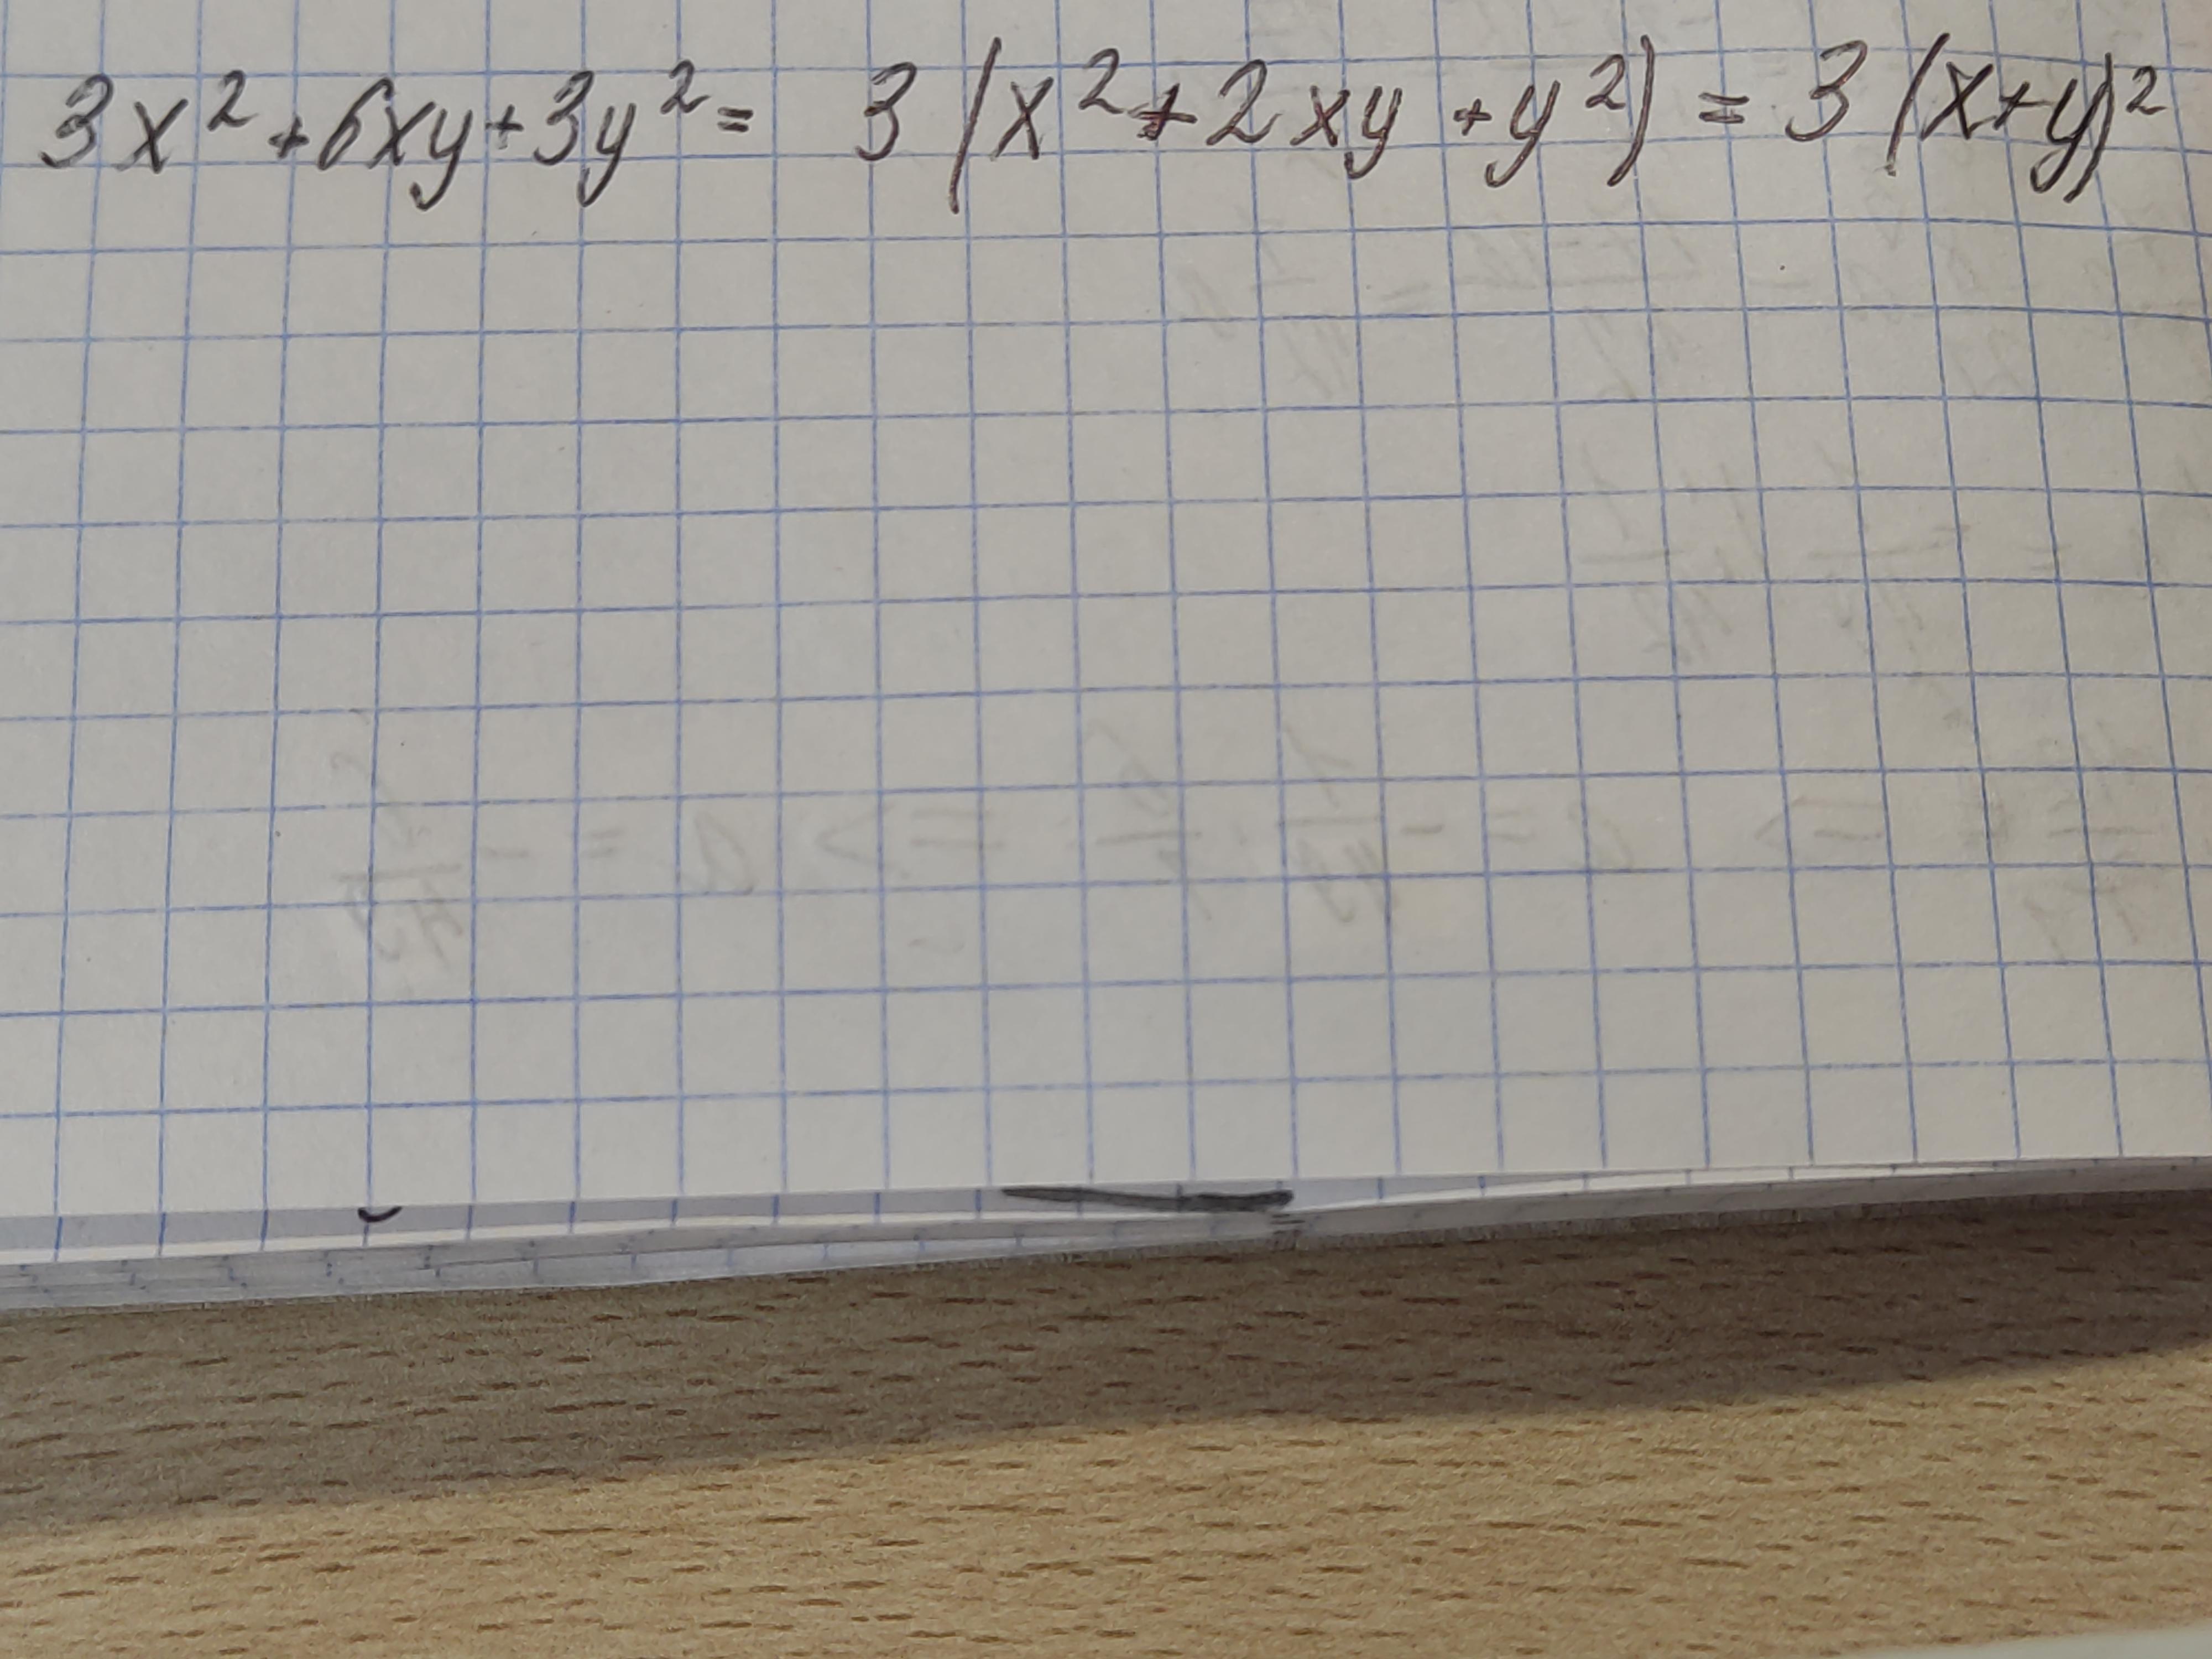 3x² + 6xy + 3y² = 3(x² + 2xy + y²) = 3(x+y)²